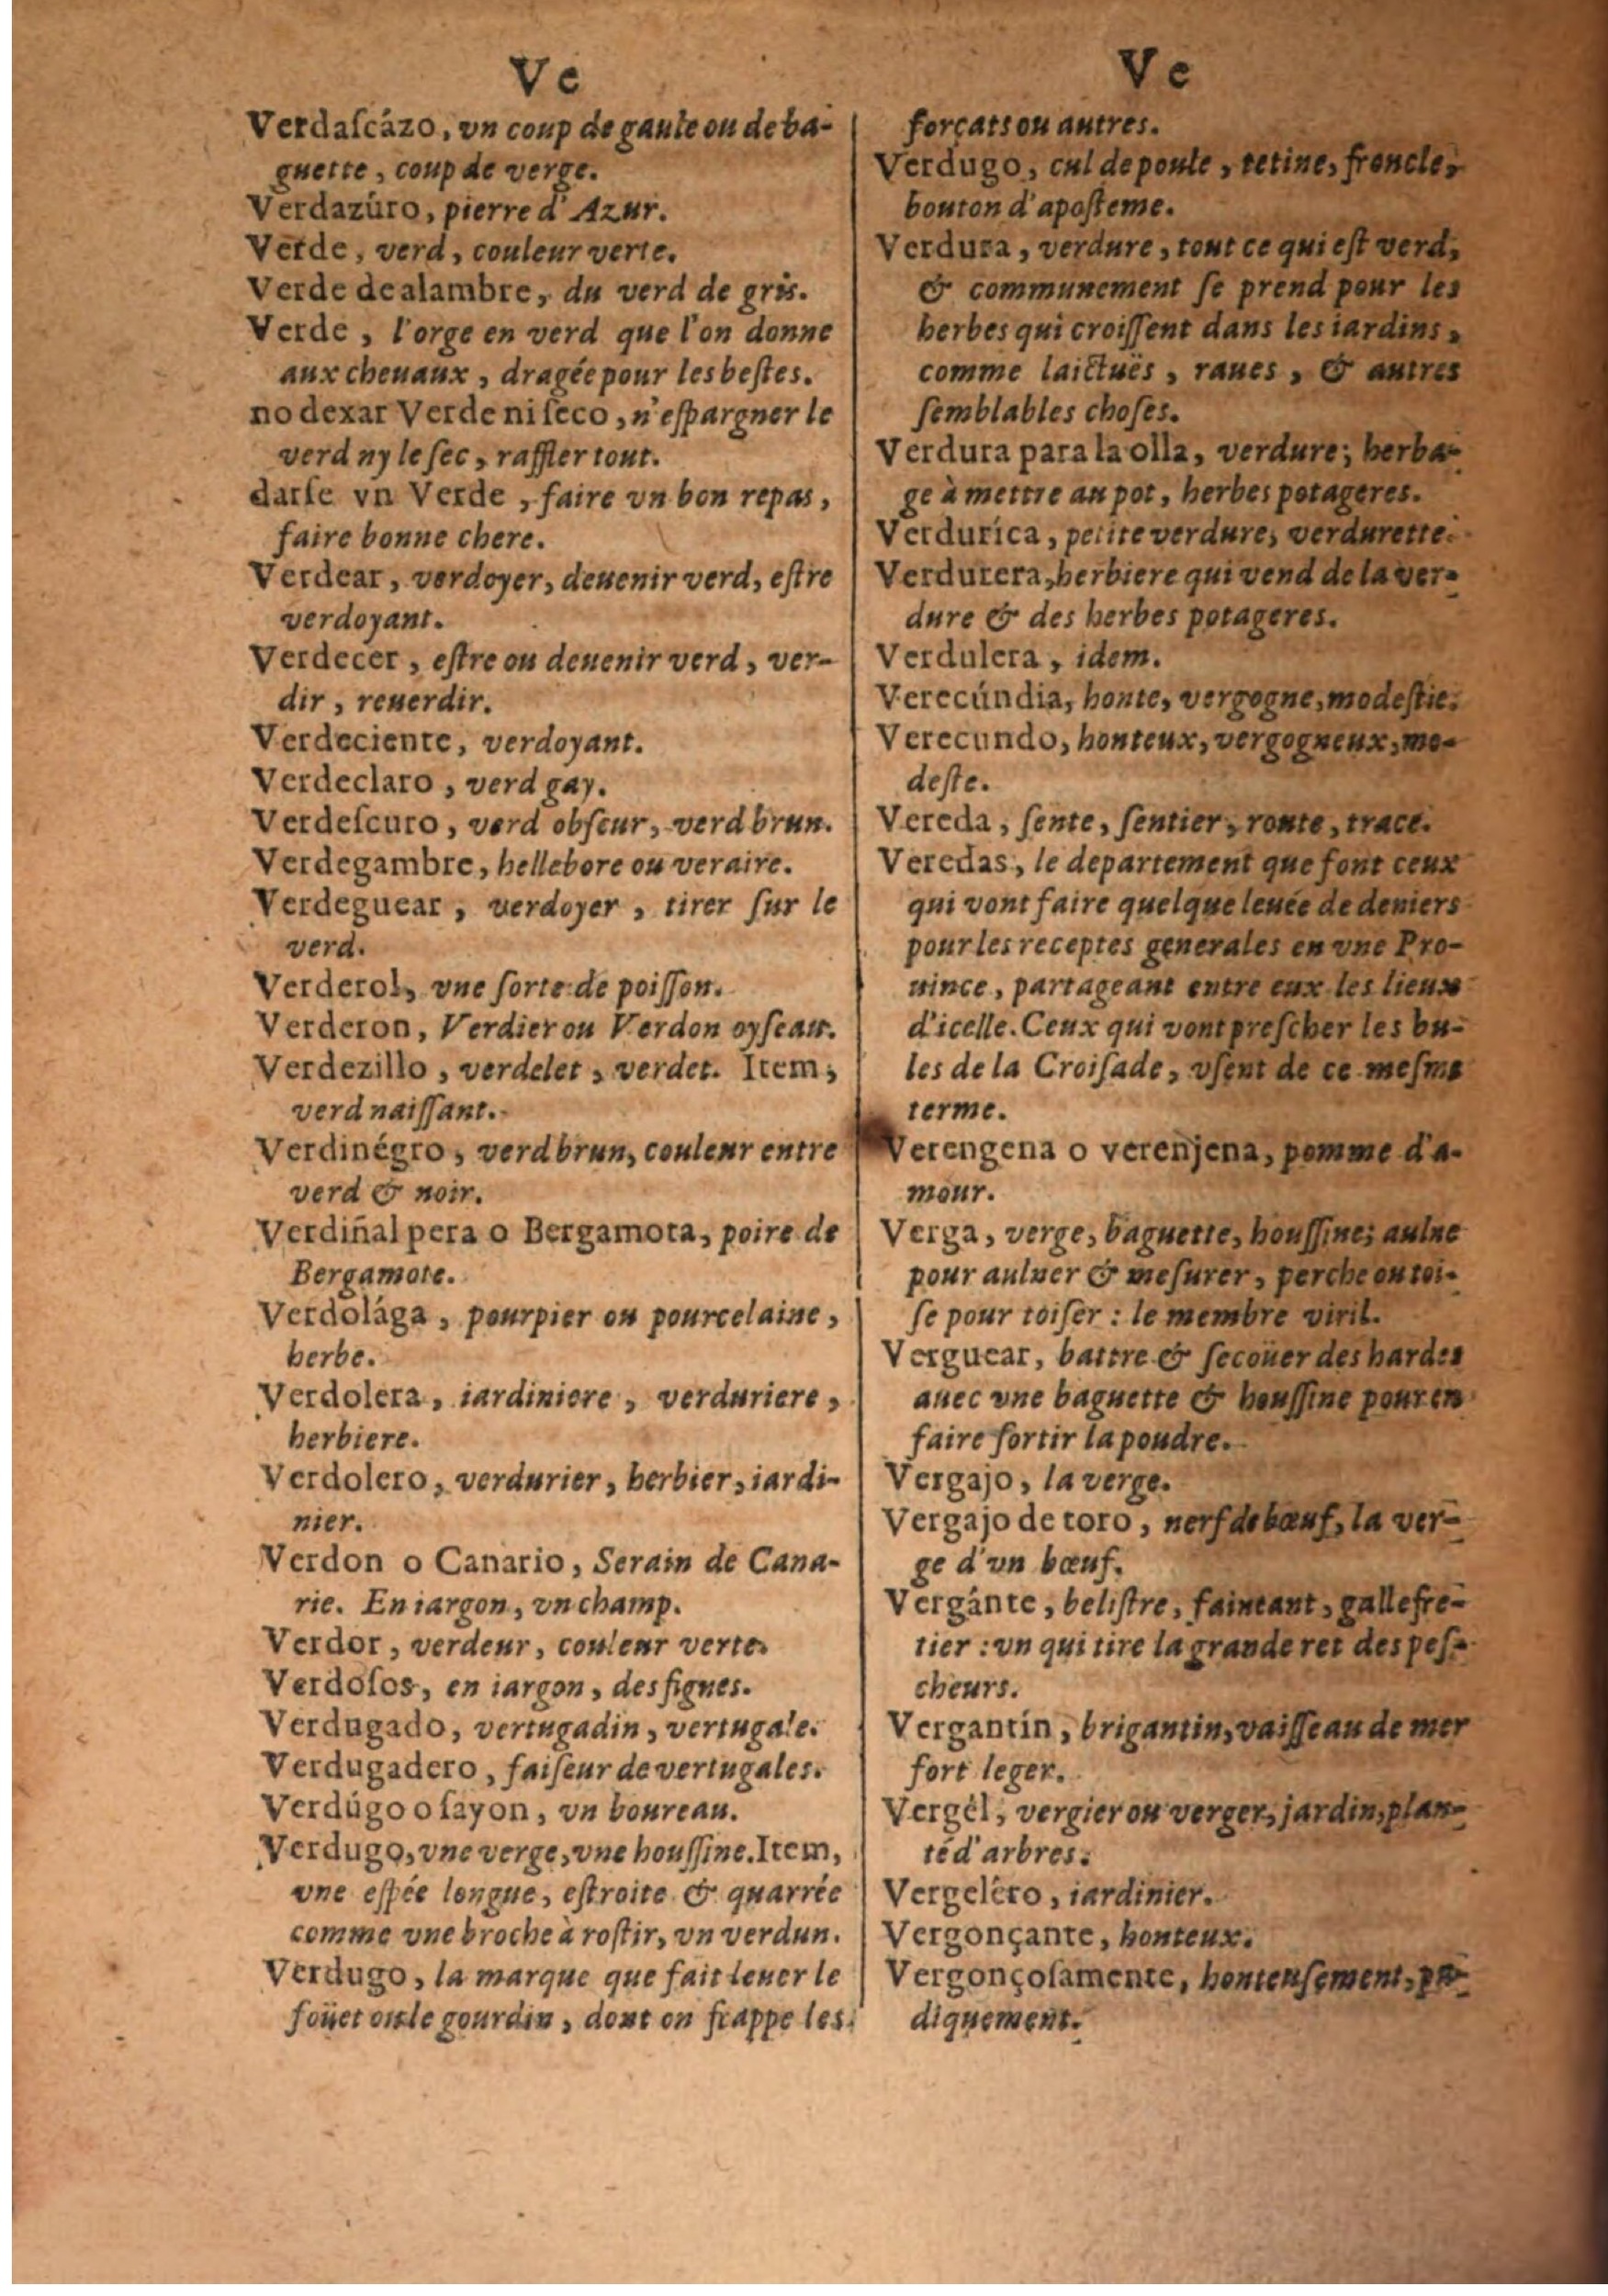 Ve
Verdaſcázo, vn coup de gaule ou de ba-
guette, coup de verge.
Verdazúro, pierre d'Azur.
Verde, verd, couleur verte.
Verde de alambre, du verd de gris.
Verde, l'orge en verd que l'on donne
aux cheuaux, dragée pour les beſtes.
no dexar Verde ni ſeco, n'eſpargner le
verd ny le ſec, raffler tout.
darſe vn Verde, faire vn bon repas,
faire bonne chere.
Verdear, verdoyer, deuenir verd, eſtre
verdoyant.
Verdecer, eſtre ou deuenir verd, ver-
dir, reuerdir.
Verdeciente, verdoyant.
Verdeclaro, verd gay.
Verdeſcuro, verd obſcur, verd brun.
Verdegambre, hellebore ou veraire.
Verdeguear, verdoyer, tirer ſur le
verd.
Verderol, vne ſorte de poiſſon.
Verderon, Verdier ou Verdon oyſeau.
Verdezillo, verdelet, verdet. Item,
verd naiſſant.
Verdinégro, verd brun, couleur entre
verd & noir.
Verdiñal pera o Bergamota, poire de
Bergamote.
Verdolága, pourpier ou pourcelaine,
herbe.
Verdolera, iardiniere, verduriere,
herbiere.
Verdolero, verdurier, herbier, iardi-
nier.
Verdon o Canario, Serain de Cana-
rie. En iargon, vn champ.
Verdor, verdeur, couleur verte.
Verdoſos, en iargon, des figues.
Verdugado, vertugadin, vertugale.
Verdugadero, faiſeur de vertugales.
Verdúgo o ſayon, vn boureau.
Verdugo, vne verge, vne houſſine. Item,
vne eſpée longue, eſtroite & quarrée
comme vne broche à roſtir, vn verdun.
Verdugo, la marque que fait leuer le
foüet ou le gourdin, dont on frappe les
Ve
forçats ou autres.
Verdugo, cul de poule, tetine, froncle,
bouton d'apoſteme.
Verdura, verdure, tout ce qui eſt verd,
& communement ſe prend pour les
herbes qui croiſſent dans les iardins,
comme laictuës, raues, & autres
ſemblables choſes.
Verdura para la olla, verdure, herba-
ge à mettre au pot, herbes potageres.
Verduríca, petite verdure, verdurette.
Verdurera, herbiere qui vend de la ver-
dure & des herbes potageres.
Verdulera, idem.
Verecúndia, honte, vergogne, modeſtie.
Verecundo, honteux, vergogneux, mo-
deſte.
Vereda, ſente, ſentier, route, trace.
Veredas, le departement que font ceux
qui vont faire quelque leuée de deniers
pour les receptes generales en vne Pro-
uince, partageant entre eux les lieux
d'icelle. Ceux qui vont preſcher les bu-
les de la Croiſade, vſent de ce meſme
terme.
Verengena o verenjena, pomme d'a-
mour.
Verga, verge, baguette, houſſine; aulne
pour aulner & meſurer, perche ou toi-
ſe pour toiſer: le membre viril.
Verguear, battre & ſecoüer des hardes
auec vne baguette & houſſine pour en
faire ſortir la poudre.
Vergajo, la verge.
Vergajo de toro, nerf de bœuf, la ver-
ge d'vn bœuf.
Vergánte, beliſtre, faineant, gallefre-
tier: vn qui tire la grande ret des peſ-
cheurs.
Vergantín, brigantin, vaiſſeau de mer
fort leger.
Vergél, vergier ou verger, jardin, plan-
té d'arbres.
Vergeléro, iardinier.
Vergonçante, honteux.
Vergonçoſamente, honteuſement, pu-
diquement.